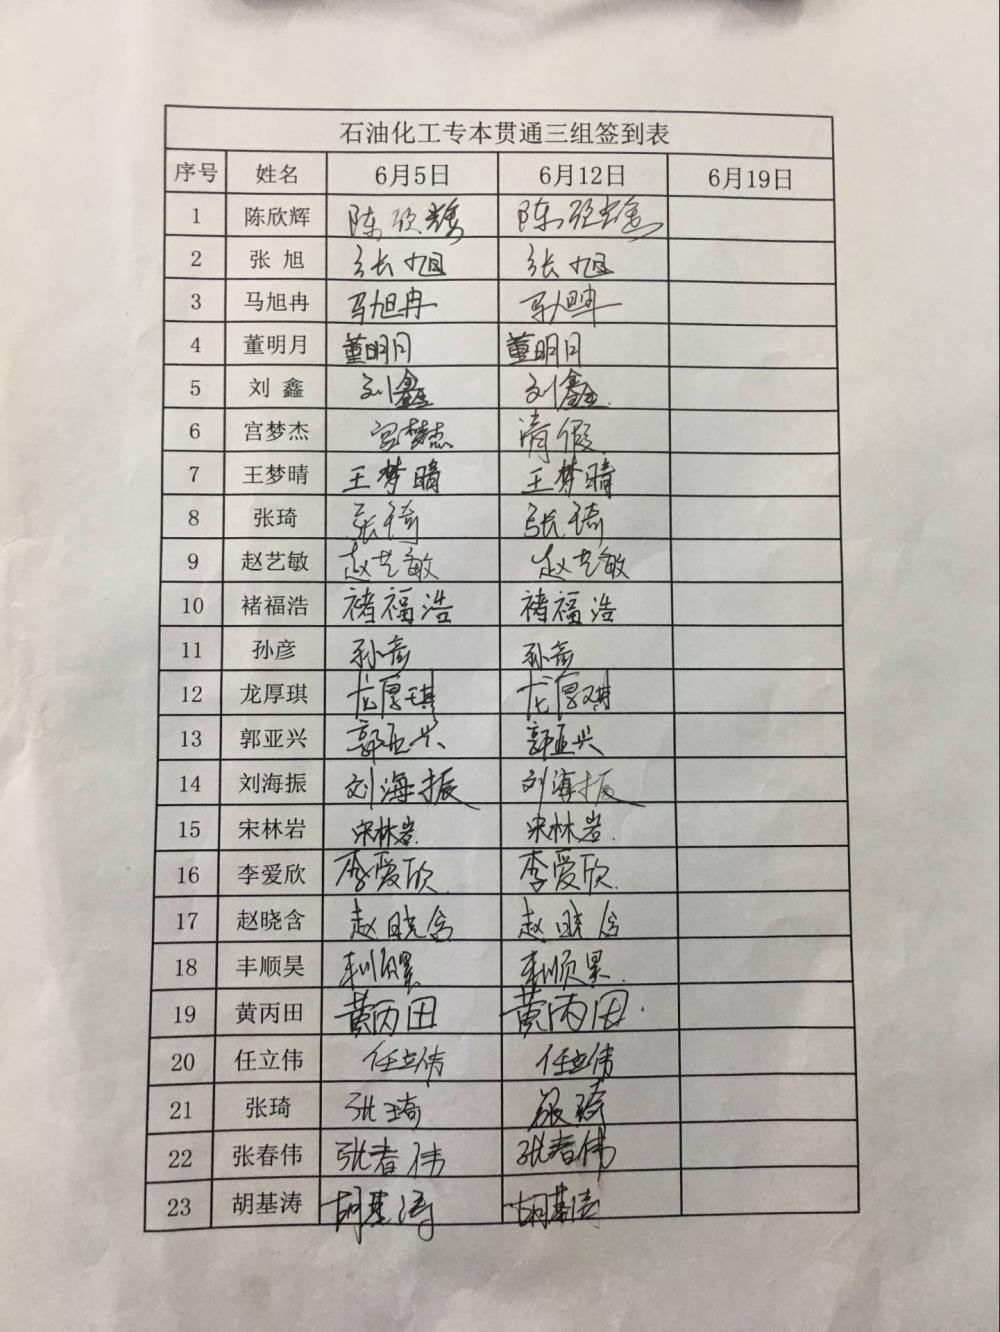 石油化工专本贯通三组签到表
序号 姓名 6月5日 6月12日 6月19日
1 陈欣辉 陈欣辉 陈欣辉
2 张 旭 张旭 张旭
3 马旭冉 马旭冉 马旭冉
4 董明月 董明月 董明月
5 刘 鑫 刘鑫 刘鑫
6 宫梦杰 宫梦杰 请假
7 王梦晴 王梦晴 王梦晴
8 张琦 张琦 张琦
9 赵艺敏 赵艺敏 赵艺敏
10 褚福浩 褚福浩 褚福浩
11 孙彦 孙彦 孙彦
12 龙厚琪 龙厚琪 龙厚琪
13 郭亚兴 郭亚兴 郭亚兴
14 刘海振 刘海振 刘海振
15 宋林岩 宋林岩 宋林岩
16 李爱欣 李爱欣 李爱欣
17 赵晓含 赵晓含 赵晓含
18 丰顺昊 丰顺昊 丰顺昊
19 黄丙田 黄丙田 黄丙田
20 任立伟 任立伟 任立伟
21 张琦 张琦 张琦
22 张春伟 张春伟 张春伟
23 胡基涛 胡基涛 胡基涛